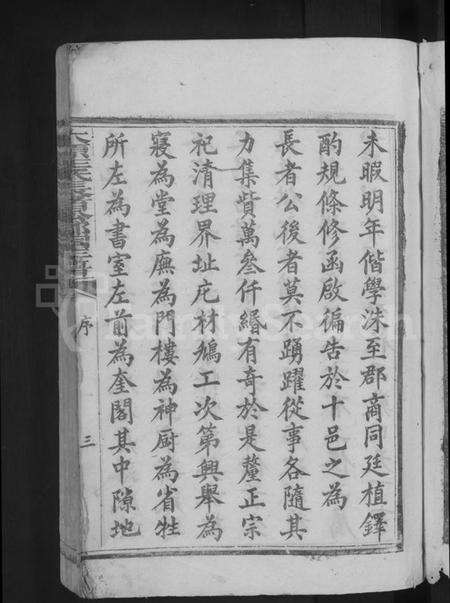 未暇明年偕學洙至郡商同廷植鐸
酌規條修函啟徧告於十邑之為
長者公後者莫不踴躍從事各隨其
力集貲萬叁仟緡有奇於是釐正宗
祀清理界址庀材鳩工次第興舉為
寢為堂為廡為門樓為神厨為省牲
所左為書室左前為奎閣其中隙地
序
三
FamilySearch